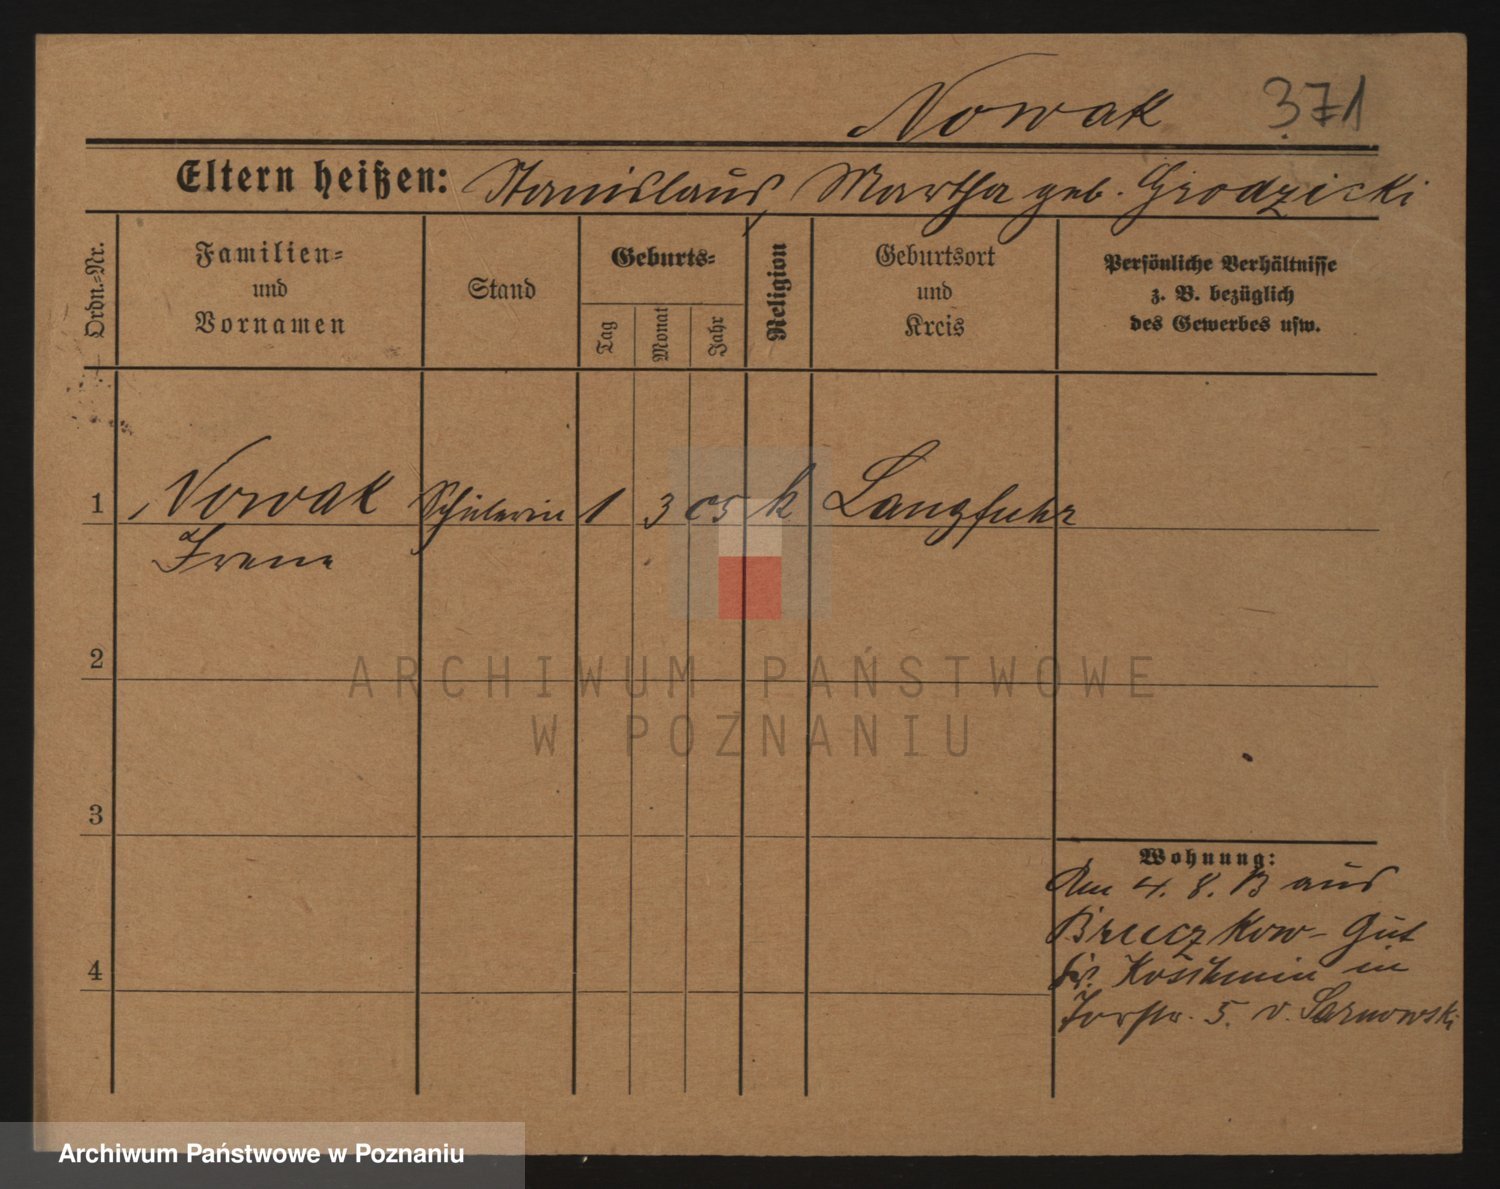 Nowak 371
Eltern heißen: Stanislaus, Martha geb. Grodzicki
Ordn.-Nr.
Familien-
und
Vornamen
Stand
Geburts-
Tag
Monat
Jahr
Religion
Geburtsort
und
Kreis
Persönliche Verhältnisse
z. B. bezüglich
des Gewerbes usw.
1 Nowak Schülerin 1 3 05 k Langfuhr
Irene
2
3
4
Wohnung:
Am 4. 8. 13 aus
Bruczkow- Gut
Koschmin in
5. v. Sarnowski
ARCHIWUM PAŃSTWOWE
W POZNANIU
Archiwum Państwowe w Poznaniu